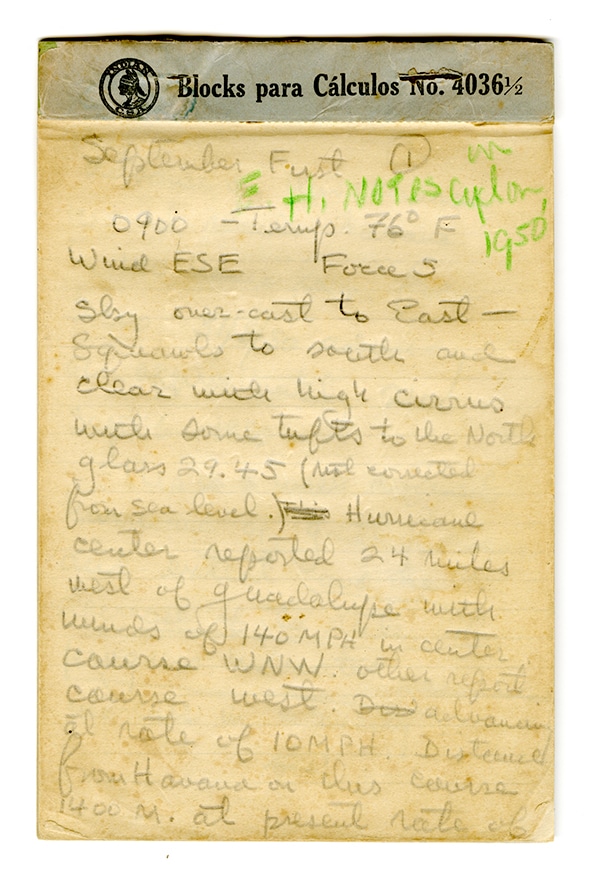 INDIAN
C.S.A.
Blocks para Cálculos No. 4036½
September First (1)
E. H. NOTES on Cyclone, 1950
0900 - Temp. 76° F
Wind ESE Force 5
Sky over-cast to East -
Squawls to south and
clear with high cirrus
with some tufts to the North
glass 29.45 (not corrected
from sea level.) Hurricane
center reported 24 miles
west of Guadalupe with
winds of 140 MPH in center
course WNW. other report
course west. advancing
at rate of 10 MPH. Distance
from Havana on this course
1400 M. at present rate of